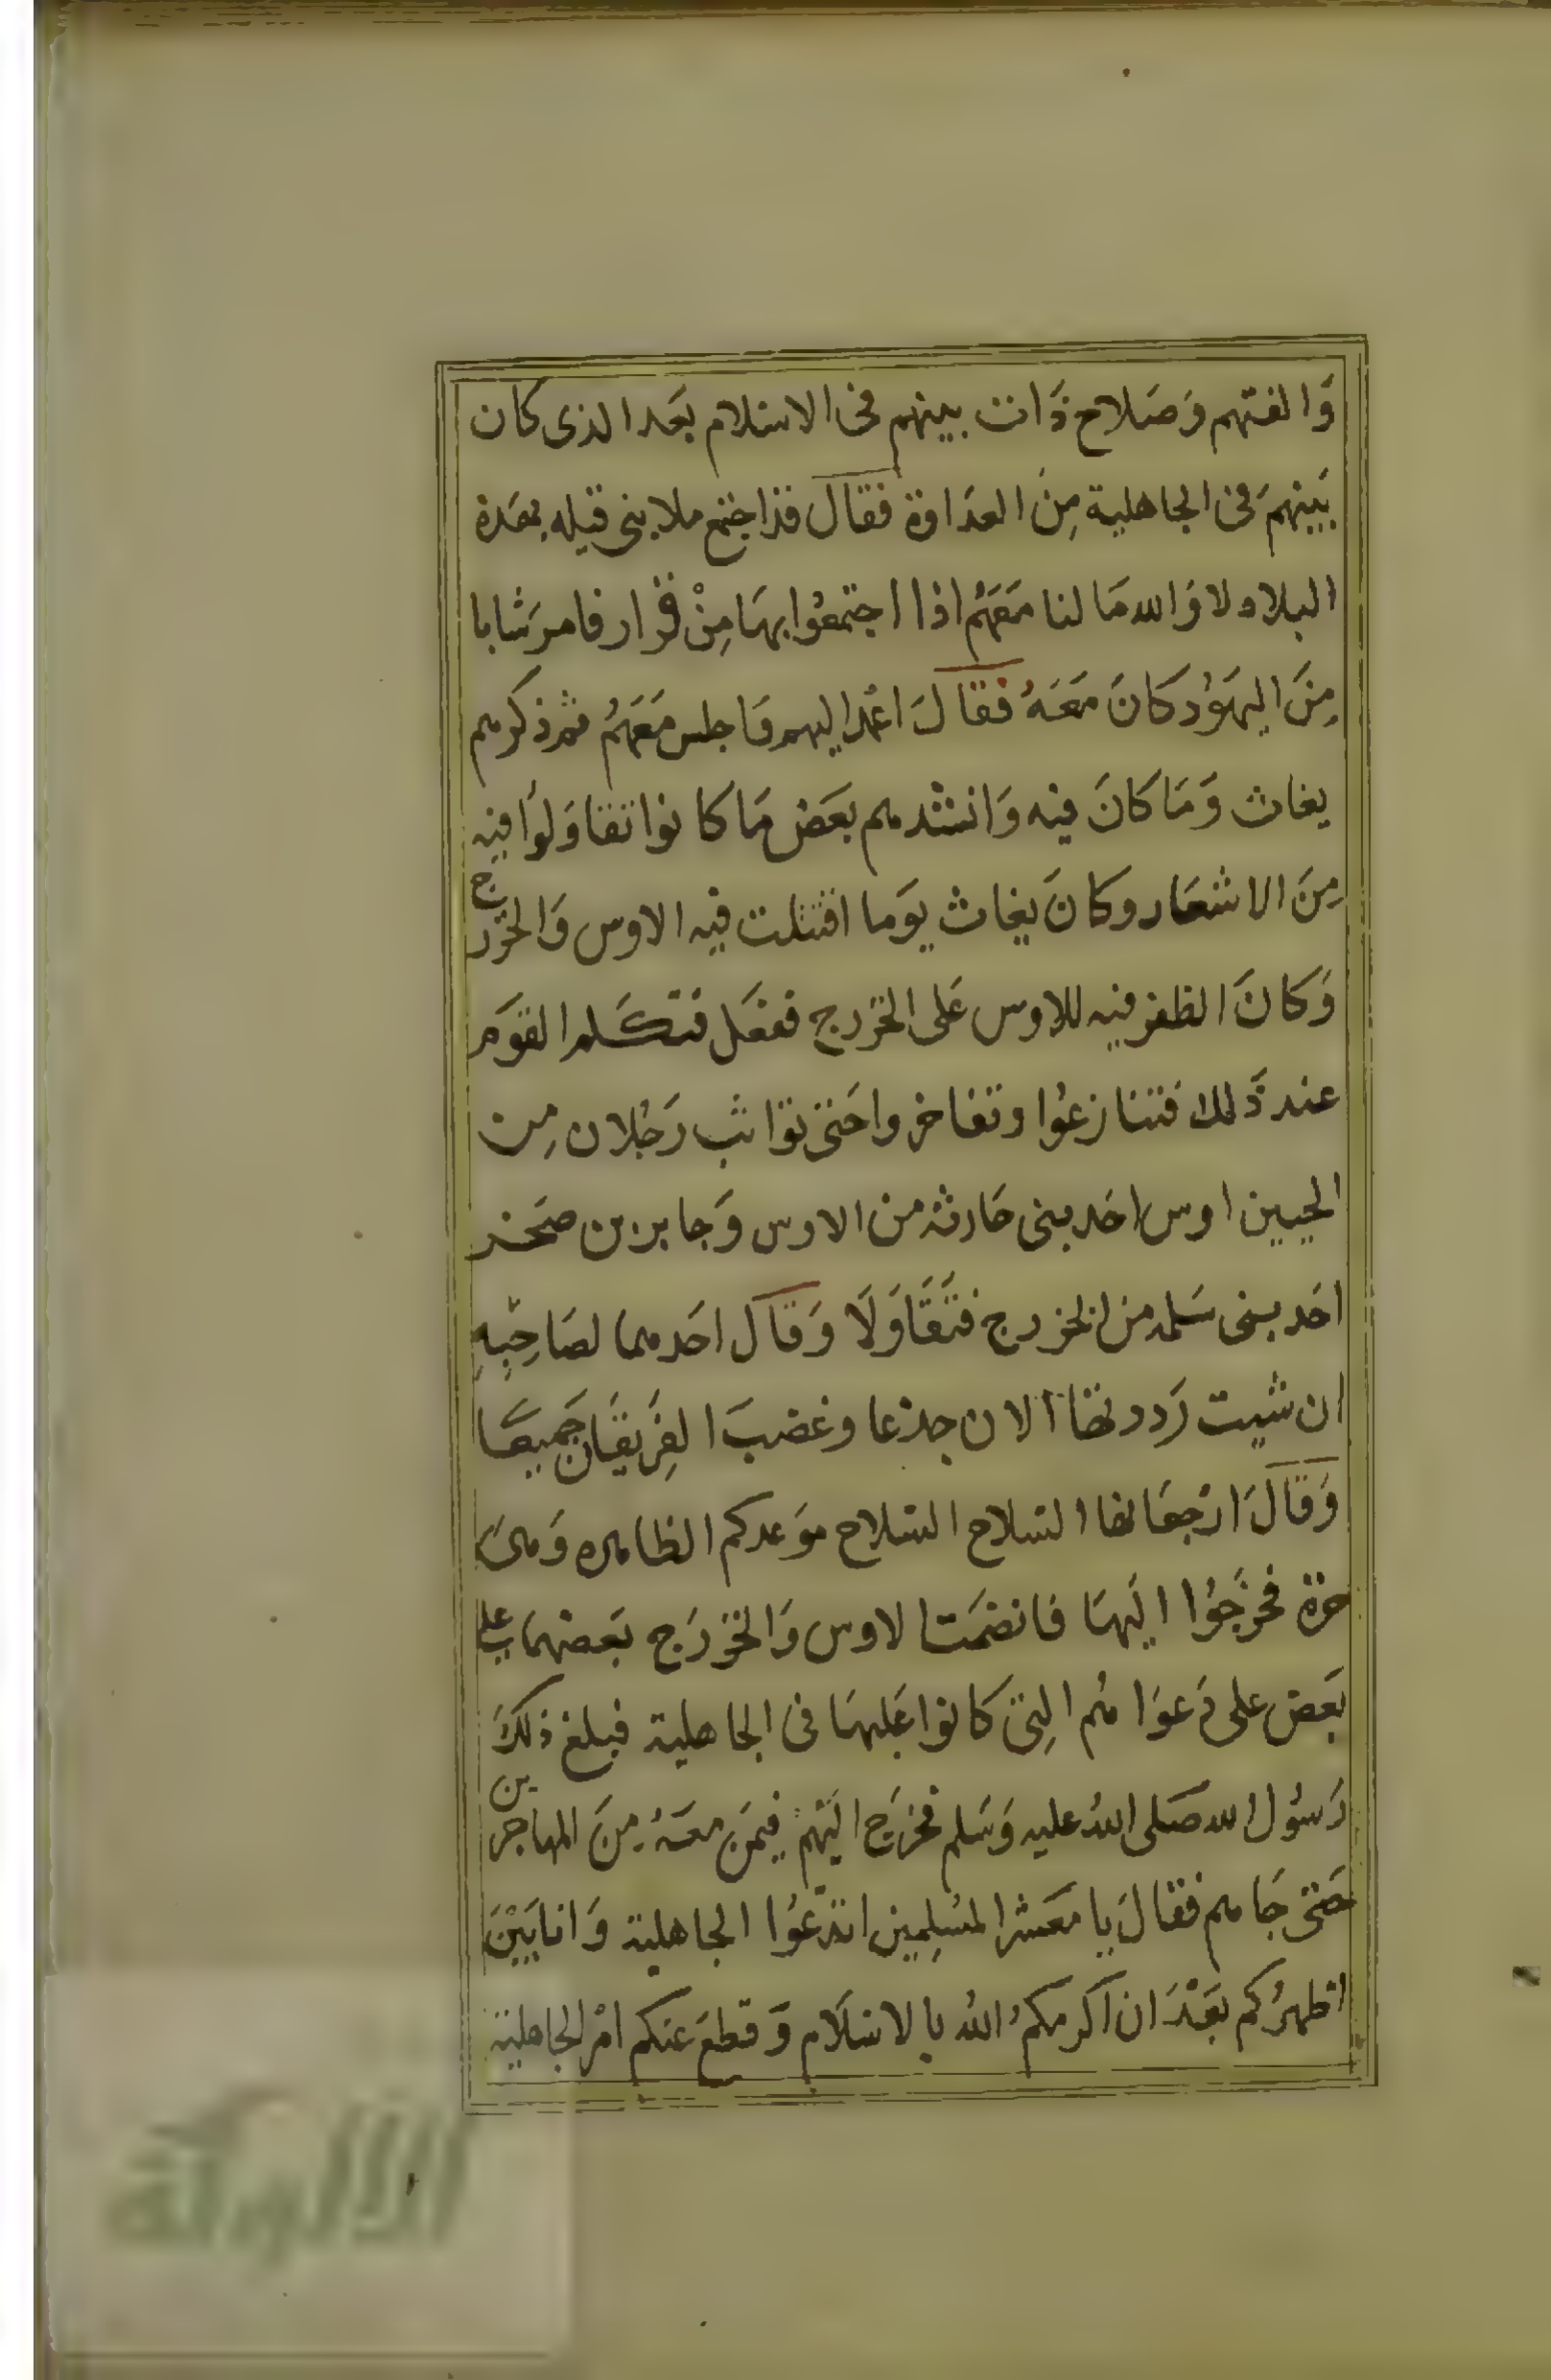 وَالفتهم وَصَلاح ذَات بينهم فى الاسلام بعَد الذى كان
بَينهمَ فى الجاهلية مِنَ العدَاوة فقالَ قد اجتمع ملا بنى قيله بهَذه
البلاد ولا وَالله مَا لنا مَعَهُم اذا اجتمعُوا بهَا مِنْ قرار فامر شابا
مِنَ اليهَوُد كانَ مَعَهُ فقالَ اعمد اليهم فاجلس مَعَهُم ثم ذكرهم
يغاث وَمَا كانَ فيه وَانشدهم بعَض مَا كانوا تقاوَلوُا فيه
مِنَ الاشعَار وكانَ يغاث يوَما اقتتلت فيه الاوس وَالخزرج
وَكانَ الظفر فيه للاوس عَلى الخزرج ففعَل فتكَلم القوَم
عند ذَلك فتنازعُوا وتفاخروا حَتى توَاثب رَجُلان مِن
الحيين اوس احَد بنى حَارثه من الاوس وَجابر بن صَخر
احَد بنى سَلمه من الخزرج فتَقَاوَلَا وَقالَ احَدهما لصَاحِبِهِ
ان شيت رَددنهَا الان جذعا وغضبَ الفِرَيقَان جَميعَا
وَقالَ ارْجعَانها السّلاح السّلاح موَعدكم الظاهره وَهىَ
حرة فخَرَجُوا اليَهَا فانضمَت الاوس وَالخزرَج بعَضهما على
بعَض على دَعوَاهُم التِى كانوا عَليهَا فى الجاهلية فبلغ ذلكَ
رَسوُل الله صَلى اللهُ عليه وَسَلم فخرَج اليَهم فِيمَن معَهُ مِنَ المهاجرين
حَتى جَاهم فقالَ يا معَشر المسُلِمين اتدّعوُا الجاهلية وَانا بَيْنَ
اظهرُكم بعَدَ ان اكرمكمُ اللهُ بالاسلَام وَقطعَ عنكم امْر الجاهلية
الألوكة